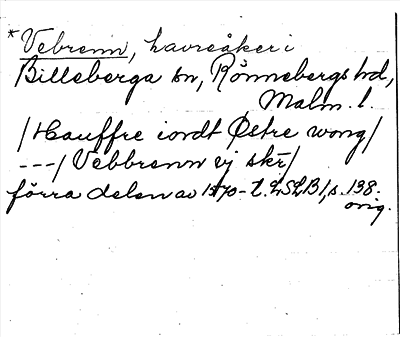 *Vebrenn, havreåker i
Billeberga sn, Rönnebergs hd,
Malm. l.
/Hauffre iordt Østre wong/
---/Vebbrenn vj skr/
förra delen av 1570-t. LSLB 1, s. 138.
orig.